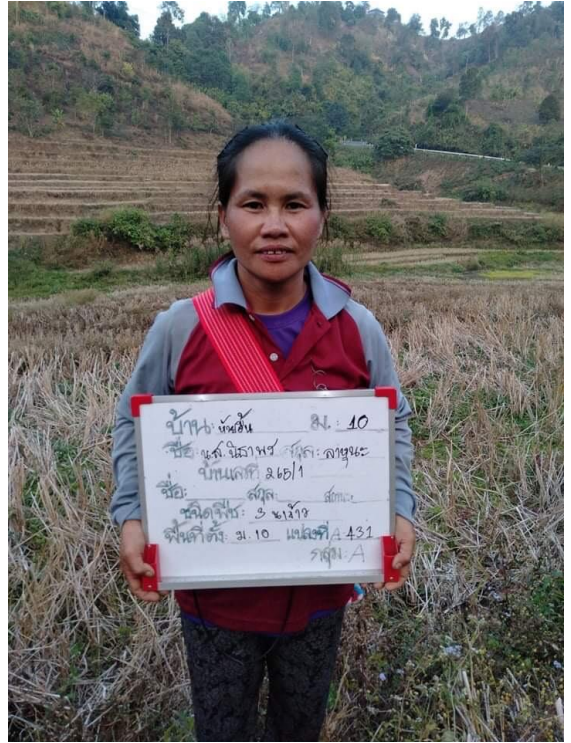 บ้าน: ห้วยส้าน ม.: 10
ชื่อ: น.ส. นิราพร สกุล: ลาหุนะ
บ้านเลขที่ 265/1
ชื่อ: สกุล: สถานะ:
ชนิดพืช: 3 นาข้าว
พื้นที่ตั้ง: ม.10 แปลงที่ A-431
กลุ่ม: A